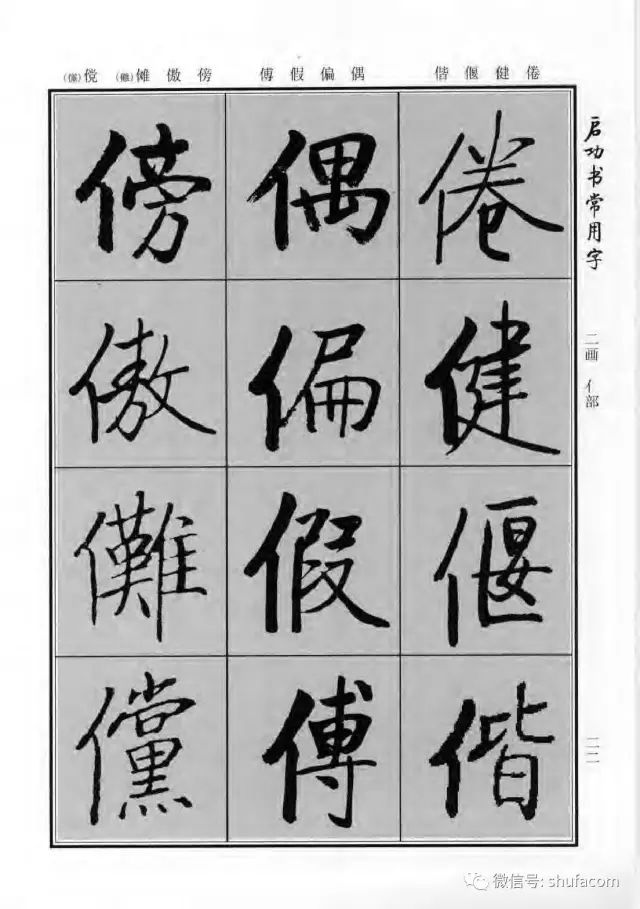 启功书常用字
二画 亻部
二二
倦健偃偕
偶偏假傅
傍傲傩(儺)傥(儻)
倦
健
偃
偕
偶
偏
假
傅
傍
傲
儺
儻
微信号: shufacom